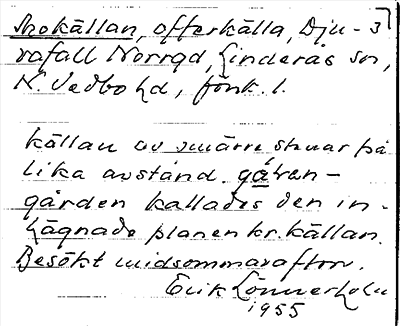 Skokällan, offerkälla, Dju- 3
rafall Norrgd, Linderås sn,
N. Vedbo hd, Jönk. l.
Källan av smärre stenar på
lika avstånd. gå
gården kallades den in-
hägnade planen kr. källan.
Besökt midsommarafton.
Erik Lönnerholm
1955